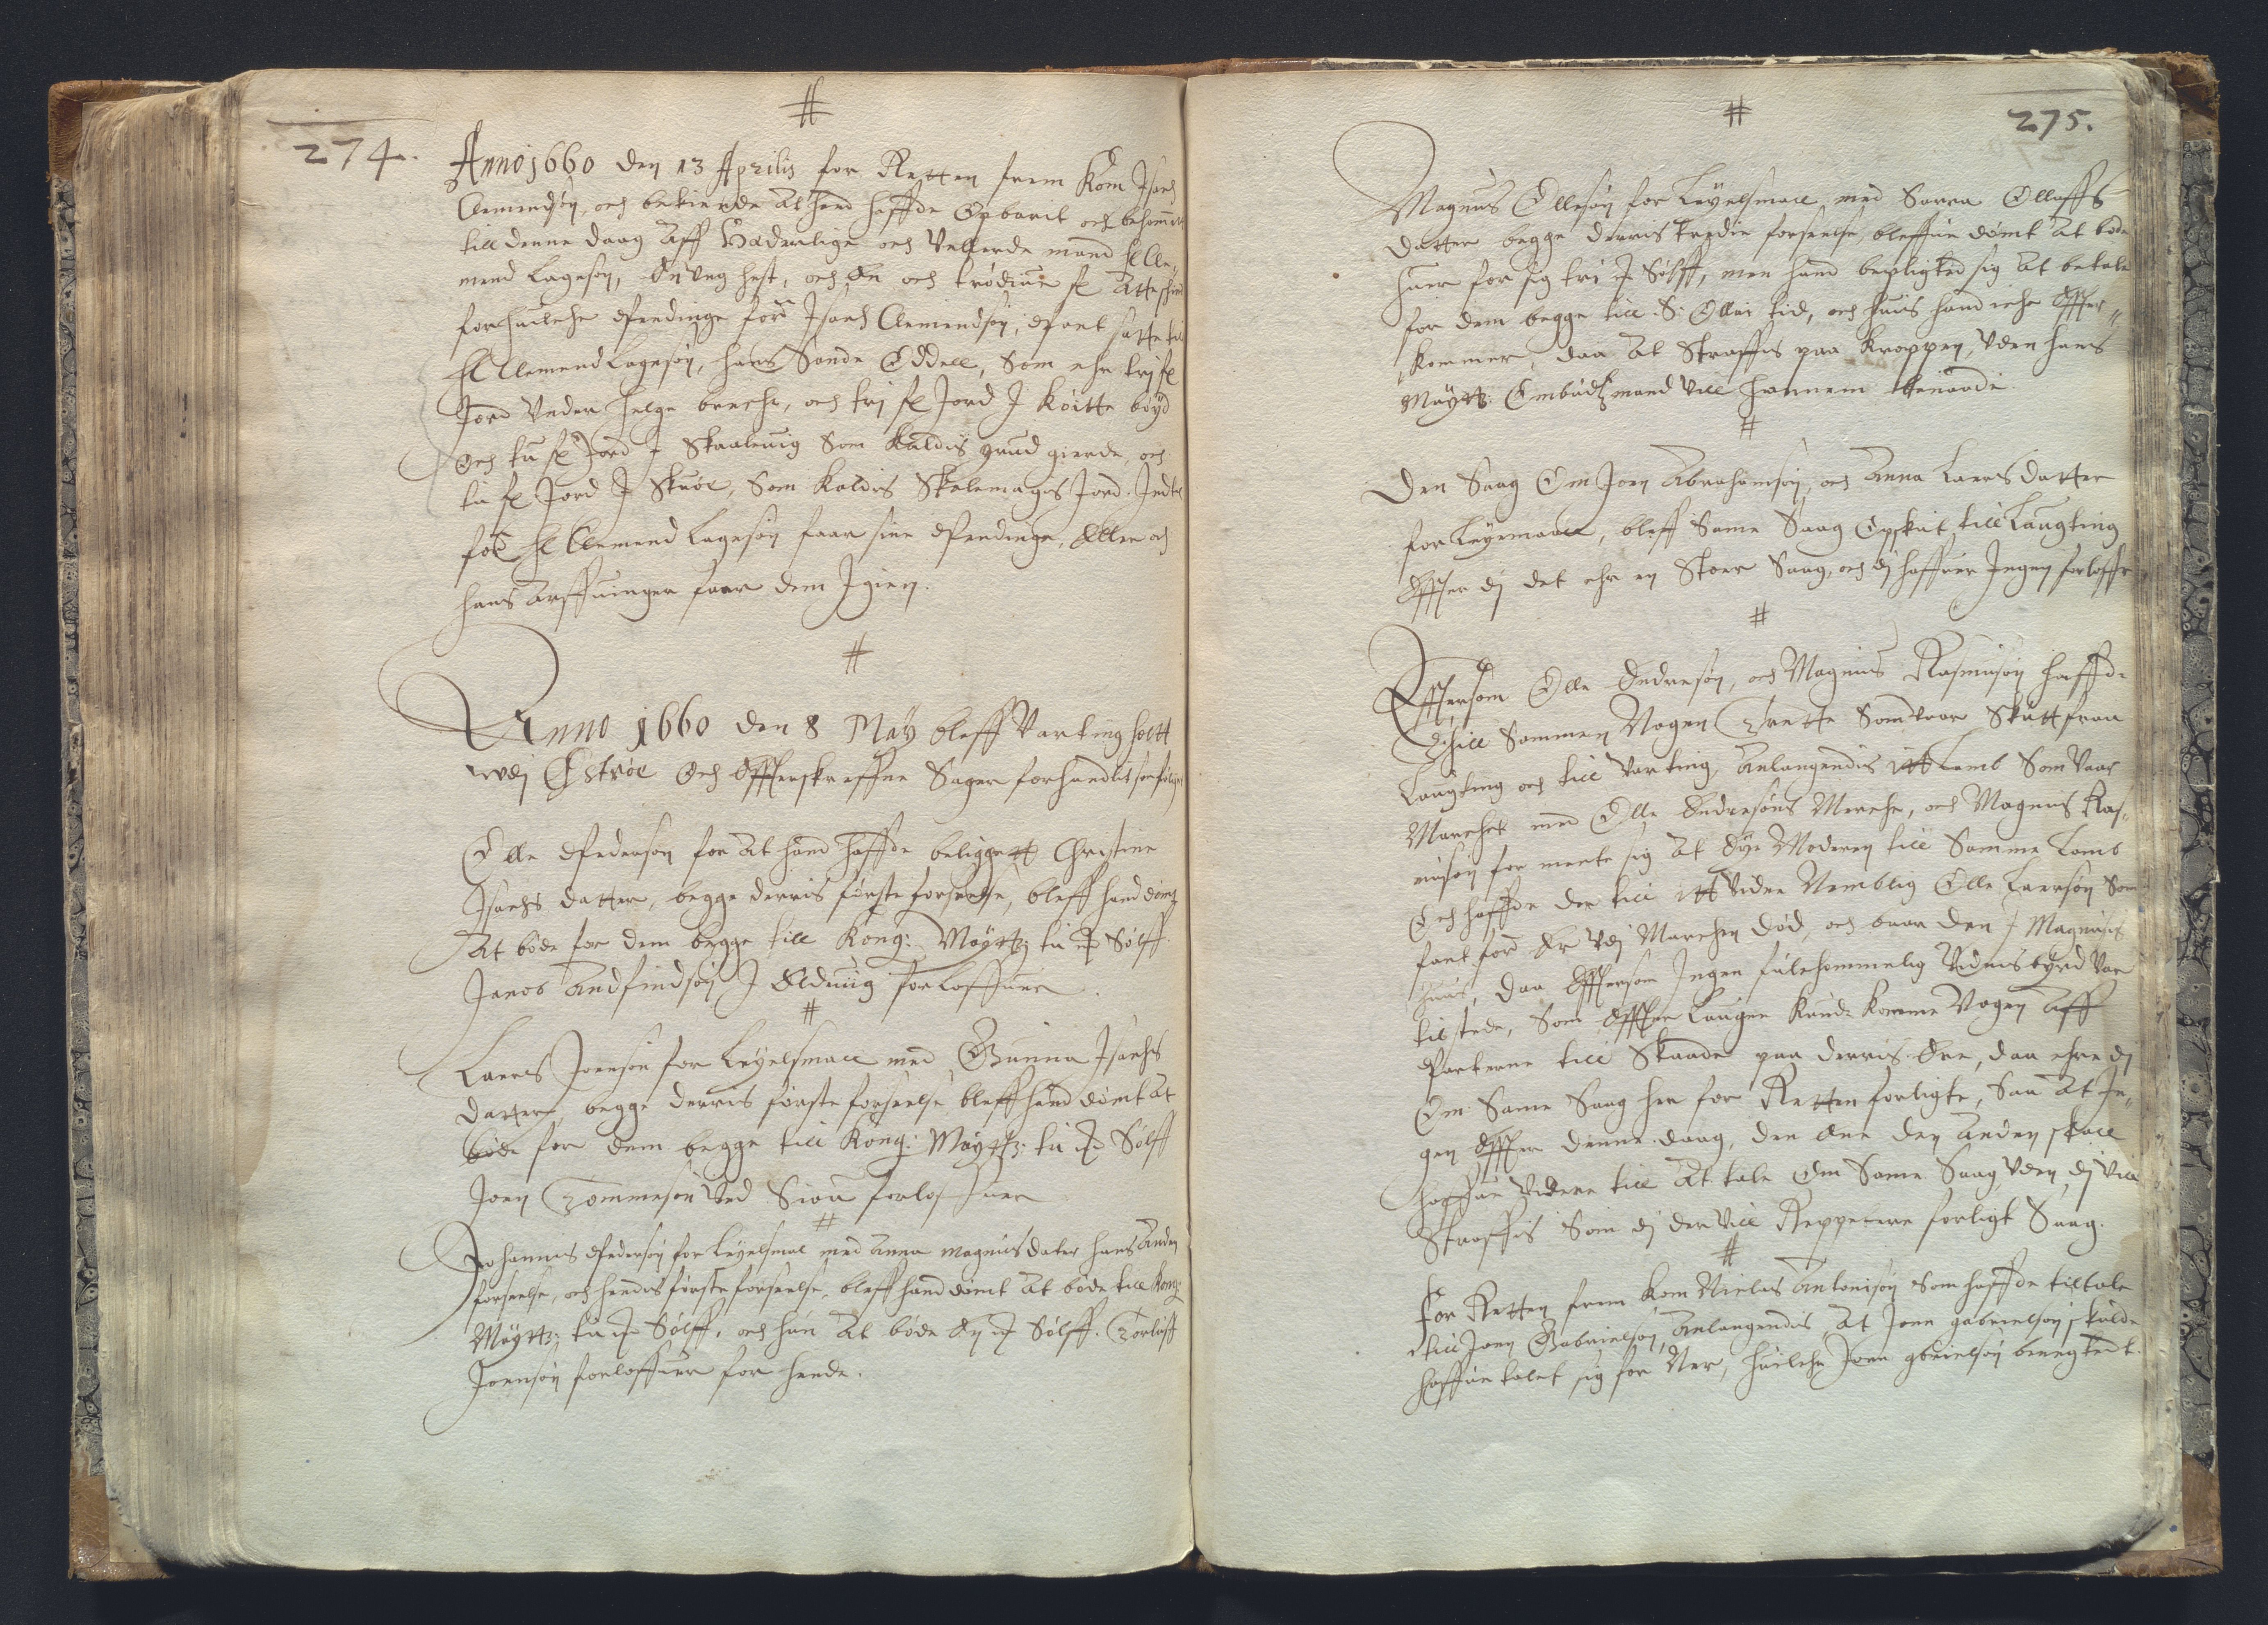 #
274.
Anno 1660 den 13 Aprilis for Retten frem Kom Isach
Clemendsøn, och bekiende at hand haffde Opbarit och bekommit
till denne daag Aff Hæderlige och Vellerde mand H Cle,
mend Lagesøn, En ung hest, och En och trødiue fl
forhuilche Pendinge forne Isach Clemendsøn, Pant satte til
H Clemend Lagesøn, hans Sande Oddell, Som ehr try fl
Jord Under Helge breche, och try fl Jord I Køitte bøyd
Och tu fl Jord I Skaaleuig Som Kaldis grud gierde, och
tu fl Jord I Skuøe, Som Kaldis Skalemagers Jord. Indtil
forne H Clemend Lagesøn faar sine Pendinge, Eller och
hans Arffuinger faar dem Igien.
#
Anno 1660 den 8 May bleff Varting holtt
udj Østrøe Och Effterskreffne Sager forhandlit som følger
Olle Pedersøn for At hand haffde beliggett Christine
Isachs datter, begge derris første forseelse, bleff hand dømt
At bøde for dem begge till Kong: Maÿtz: tu Sølff.
Janos Andfindsøn I Elduig forloffuer.
#
Laers Joensøn for Leÿelsmaal med Gunna Isachs
datter, begge derris første forseelse bleff hand dømt at
bøde for dem begge till Kong: Maÿtz: tu Sølff
Joen Tommesøn Ved Siou forloffuer
#
Johannis Pedersøn for Leÿelsmal med Anna Magnusdater hans Anden
forseelse, och hendis første forseelse, bleff hand dømt At bøde till Kong:
Maÿtz: tu Sølff, och hun At bøde En Sølff. Torløff
Joensøn forloffuer for hende.
#
275.
Magnus Ollesøn for Leÿelsmaal med Sarra Olluffs
datter begge derris tredie forseelse, bleffue dømt At bøde
huer for sig trj Sølff, men hand bepligted sig At betale
for dem begge till S: Ollai tid, och huis hand iche Effter,,
kommer, daa At Straffis paa Kroppen, Uden hans
Maÿtz: Embudtzmand Vill hannem benaade.
#
Den Saag Om Joen Abrahamsøn, och Anna Laersdatter
for Leÿermaall, bleff Same Saag Opskut till Laugting
Effter dj det ehr en Stoer Saag, och dj haffuer Ingen forloffr
#
Effttersom Olle Endresøn, och Magnus Rasmusøn haffde
Thill Sammen Nogen Trette Som Vaar Skutt fraa
Laugting och till Varting, Anlangendis itt Lamb Som Vaar
Marchet med Olle Endresøns Merche, och Magnus Ras,,
musøn for mente sig At Eÿe Moderen till Samme Lamb
Och haffde der till itt Vidne Nemblig Olle Laersøn Som
fant forne Er Udj Marchen død, och baar den I Magnusis
huus, daa Effttersom Ingen fulchommelig Vidnisbyrd Var
tilstede, Som Effter Laugen Kunde komme Nogen Aff
Parterne till Skaade paa derris Ere, daa ehre dj
Om Same Saag her for Retten forligte, Saa At In,,
gen Effter denne daag, den Ene den Anden skall
haffue Videre till At tale Om Same Saag Uden dj Vill
Straffis Som dj der Vill Reppetere forligt Saag.
#
For Retten frem Kom Niclas Antonisøn Som haffde tiltale
till Joen Gabrielsøn, Anlangendis At Joen gabrielsøn skulde
haffue talet sig for Ner, huilche Joen gbrielsøn benegtedt.